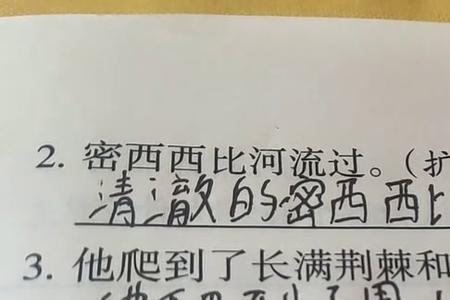 2. 密西西比河流过。(扩
清澈的密西西比
3. 他爬到了长满荆棘和